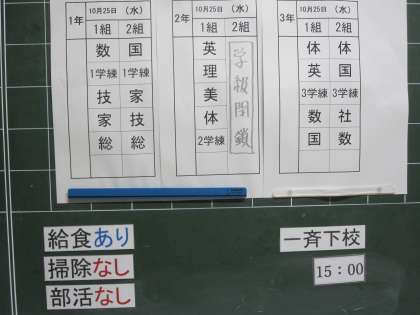 1年 10月25日 (水)
1組 2組
数 国
1学練 1学練
技 家
家 技
総 総
2年 10月25日 (水)
1組 2組
英 学級閉鎖
理
美
体
2学練
3年 10月25日 (水)
1組 2組
体 体
英 国
3学練 3学練
数 社
国 数
給食あり
掃除なし
部活なし
一斉下校
15：00